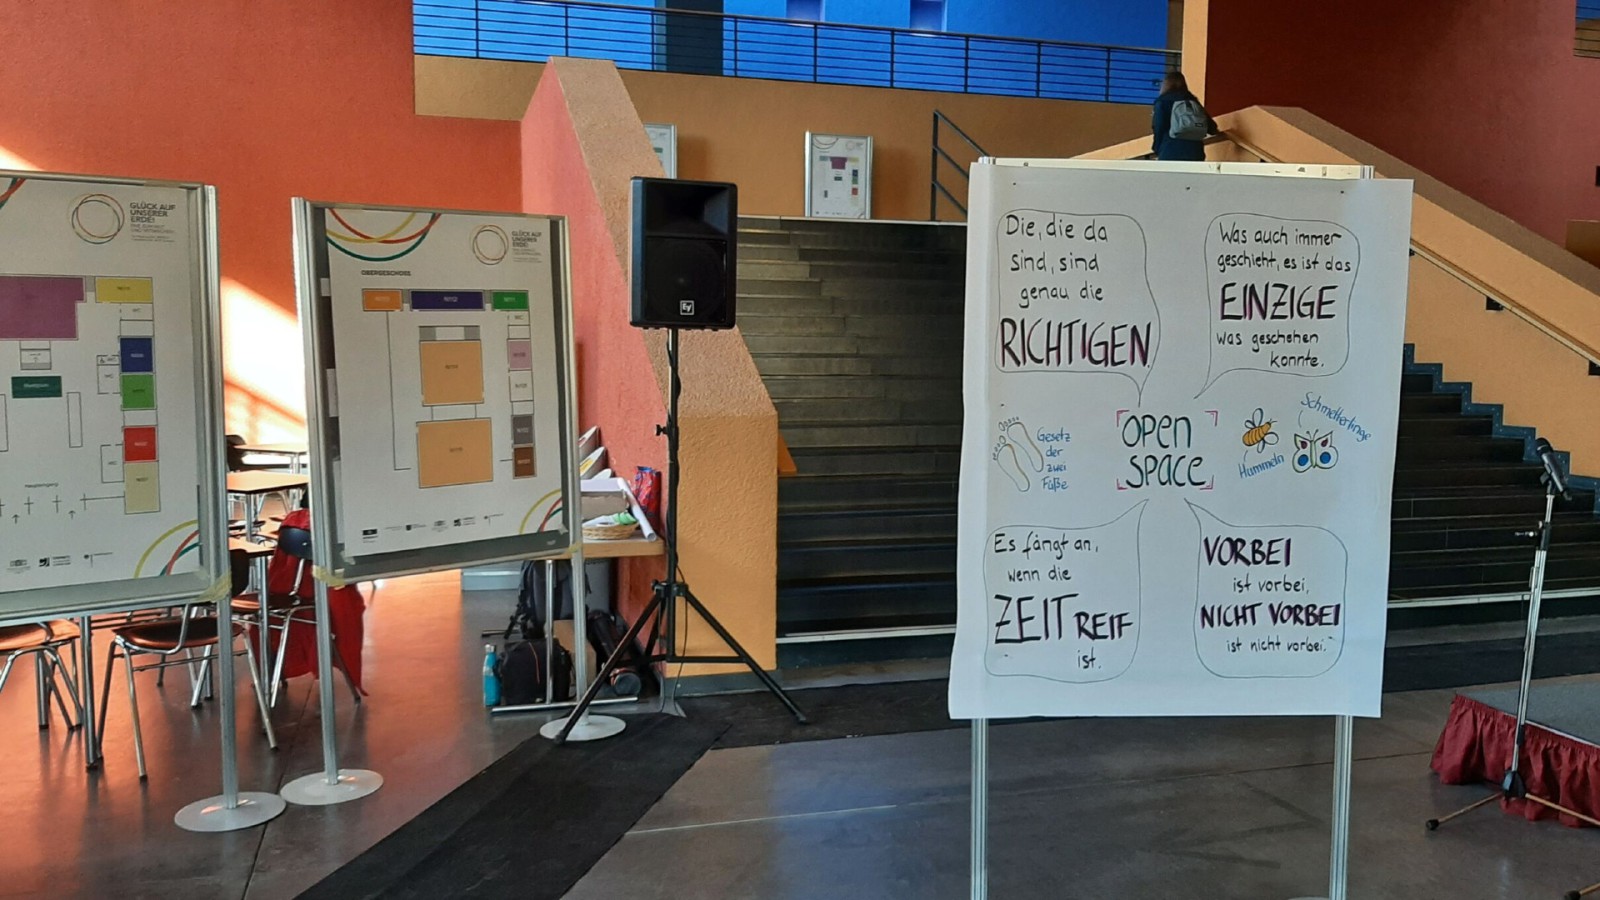 GLÜCK AUF
UNSERER
ERDE!
GLÜCK AUF
UNSERER
ERDE!
OBERGESCHOSS
WC
WC
Haupteingang
EV
Die, die da
sind, sind
genau die
RICHTIGEN.
Was auch immer
geschieht, es ist das
EINZIGE
was geschehen
konnte.
Gesetz
der
zwei
Füße
OPEN
SPACE
Hummeln
Schmetterlinge
Es fängt an,
wenn die
ZEIT REIF
ist.
VORBEI
ist vorbei,
NICHT VORBEI
ist nicht vorbei.